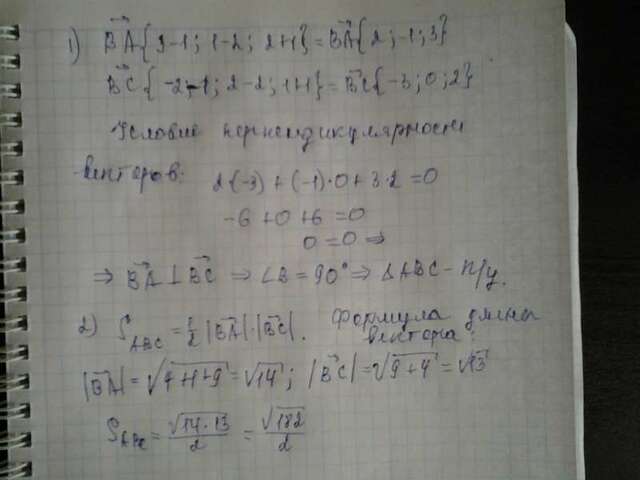 1) BA{3-1; 1-2; 2+1} = BA{2; -1; 3}
BC{-2-1; 2-2; 1+1} = BC{-3; 0; 2}
Условие перпендикулярности
векторов: 2·(-3) + (-1)·0 + 3·2 = 0
-6 + 0 + 6 = 0
0 = 0 ⇒
⇒ BA ⊥ BC ⇒ ∠B = 90° ⇒ ΔABC - п/у.
2) S_ABC = 1/2 |BA|·|BC|. Формула длины
вектора:
|BA| = √4+1+9 = √14; |BC| = √9+4 = √13
S_ABC = √14·13/2 = √182/2